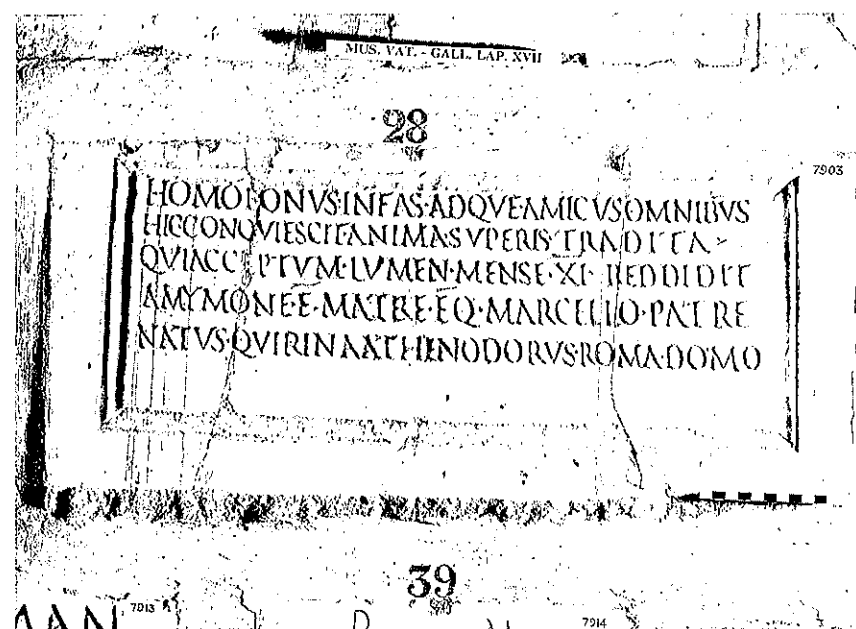 MUS. VAT. - GALL. LAP. XVII
28
7903
HOMO BONVS INFAS·ADQVE AMICVS OMNIBVS
HIC CONQVIESCIT ANIMA SVPERIS TRADITA
QVI ACCEPTVM·LVMEN·MENSE·XI·REDDIDIT
AMYMONE·E·MATRE·EQ·MARCELLO·PATRE
NATVS·QVIRINA ATHENODORVS·ROMA·DOMO
39
7913
7914